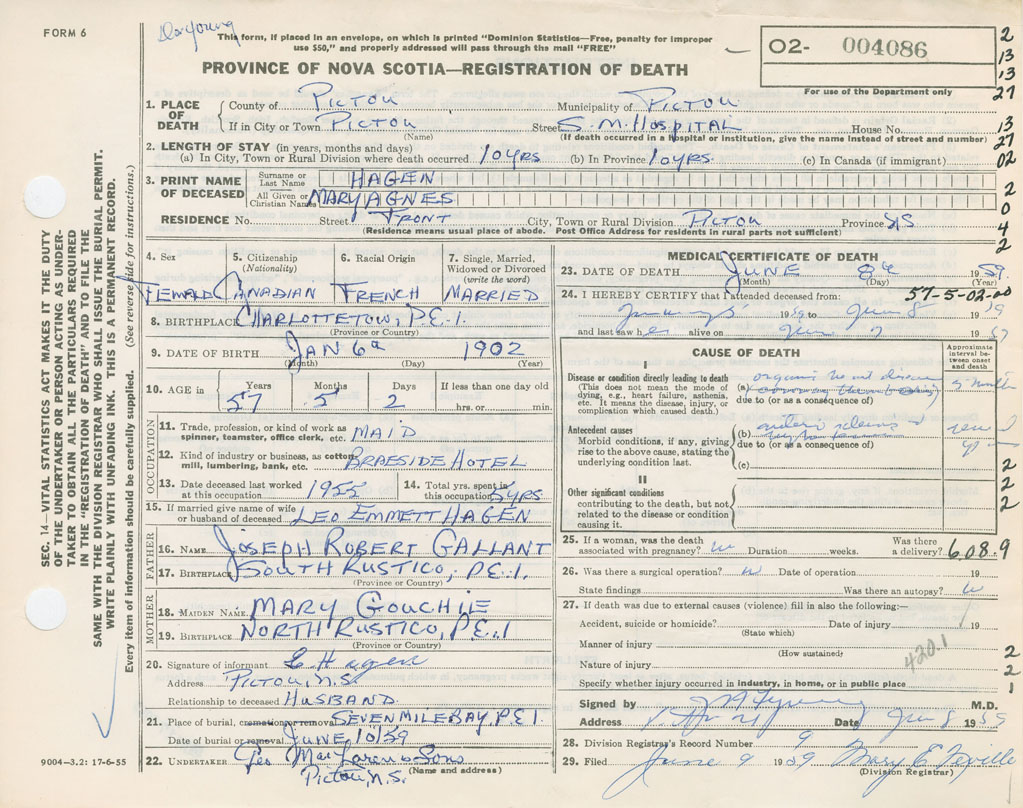 FORM 6
This form, if placed in an envelope, on which is printed "Dominion Statistics—Free, penalty for improper
use $50," and properly addressed will pass through the mail "FREE"
PROVINCE OF NOVA SCOTIA—REGISTRATION OF DEATH
O2- 004086
For use of the Department only
2
13
13
27
13
27
02
2
0
4
2
1. PLACE OF DEATH
County of PICTOU Municipality of PICTOU
If in City or Town PICTOU Street S.M. HOSPITAL House No.
(Name) (If death occurred in a hospital or institution, give the name instead of street and number)
2. LENGTH OF STAY (in years, months and days)
(a) In City, Town or Rural Division where death occurred 10 yrs (b) In Province 10 yrs. (c) In Canada (if immigrant)
3. PRINT NAME OF DECEASED
Surname or Last Name HAGEN
All Given or Christian Names MARY AGNES
RESIDENCE No. Street FRONT City, Town or Rural Division PICTOU Province NS
(Residence means usual place of abode. Post Office Address for residents in rural parts not sufficient)
4. Sex 5. Citizenship (Nationality) 6. Racial Origin 7. Single, Married, Widowed or Divorced (write the word)
FEMALE CANADIAN FRENCH MARRIED
8. BIRTHPLACE CHARLOTTETOWN, P.E.I.
(Province or Country)
9. DATE OF BIRTH JAN 6th 1902
(Month) (Day) (Year)
10. AGE in Years Months Days If less than one day old
57 5 2 hrs. or min.
OCCUPATION
11. Trade, profession, or kind of work as spinner, teamster, office clerk, etc. MAID
12. Kind of industry or business, as cotton mill, lumbering, bank, etc. BRAESIDE HOTEL
13. Date deceased last worked at this occupation 1955 14. Total yrs. spent in this occupation 5 yrs
15. If married give name of wife or husband of deceased LEO EMMETT HAGEN
FATHER
16. NAME JOSEPH ROBERT GALLANT
17. BIRTHPLACE SOUTH RUSTICO, P.E.I.
(Province or Country)
MOTHER
18. MAIDEN NAME MARY GOUCHIE
19. BIRTHPLACE NORTH RUSTICO, P.E.I
(Province or Country)
20. Signature of informant E Hagen
Address PICTOU, N.S.
Relationship to deceased HUSBAND
21. Place of burial, cremation or removal SEVEN MILE BAY, P.E.I.
Date of burial or removal JUNE 10/59
22. UNDERTAKER Geo MacLaren & Sons
Pictou, N.S. (Name and address)
MEDICAL CERTIFICATE OF DEATH
23. DATE OF DEATH JUNE 8th 1959
(Month) (Day) (Year)
24. I HEREBY CERTIFY that I attended deceased from: 57-5-02-00
January 5 1959 to June 8 1959
and last saw her alive on June 7 1959
CAUSE OF DEATH
Approximate interval between onset and death
I
Disease or condition directly leading to death
(This does not mean the mode of dying, e.g., heart failure, asthenia, etc. It means the disease, injury, or complication which caused death.)
(a) organic heart disease 5 months
due to (or as a consequence of)
Antecedent causes
Morbid conditions, if any, giving rise to the above cause, stating the underlying condition last.
(b)
due to (or as a consequence of)
(c)
II
Other significant conditions
contributing to the death, but not related to the disease or condition causing it.
2
2
2
25. If a woman, was the death associated with pregnancy? no Duration weeks. Was there a delivery?
608 9
26. Was there a surgical operation? no Date of operation 19
State findings Was there an autopsy? no
27. If death was due to external causes (violence) fill in also the following:—
Accident, suicide or homicide? Date of injury 19
(State which)
Manner of injury
(How sustained)
420.1
Nature of injury
Specify whether injury occurred in industry, in home, or in public place
2
2
1
Signed by M.D.
Address Date June 8 1959
28. Division Registrar's Record Number 9
29. Filed June 9 1959 Mary E Neville
(Division Registrar)
SEC. 14—VITAL STATISTICS ACT MAKES IT THE DUTY
OF THE UNDERTAKER OR PERSON ACTING AS UNDER-
TAKER TO OBTAIN ALL THE PARTICULARS REQUIRED
IN THE "REGISTRATION OF DEATH" AND TO FILE THE
SAME WITH THE DIVISION REGISTRAR WHO SHALL ISSUE THE BURIAL PERMIT.
WRITE PLAINLY WITH UNFADING INK. THIS IS A PERMANENT RECORD.
Every item of information should be carefully supplied. (See reverse side for instructions.)
9004-3.2: 17-6-55